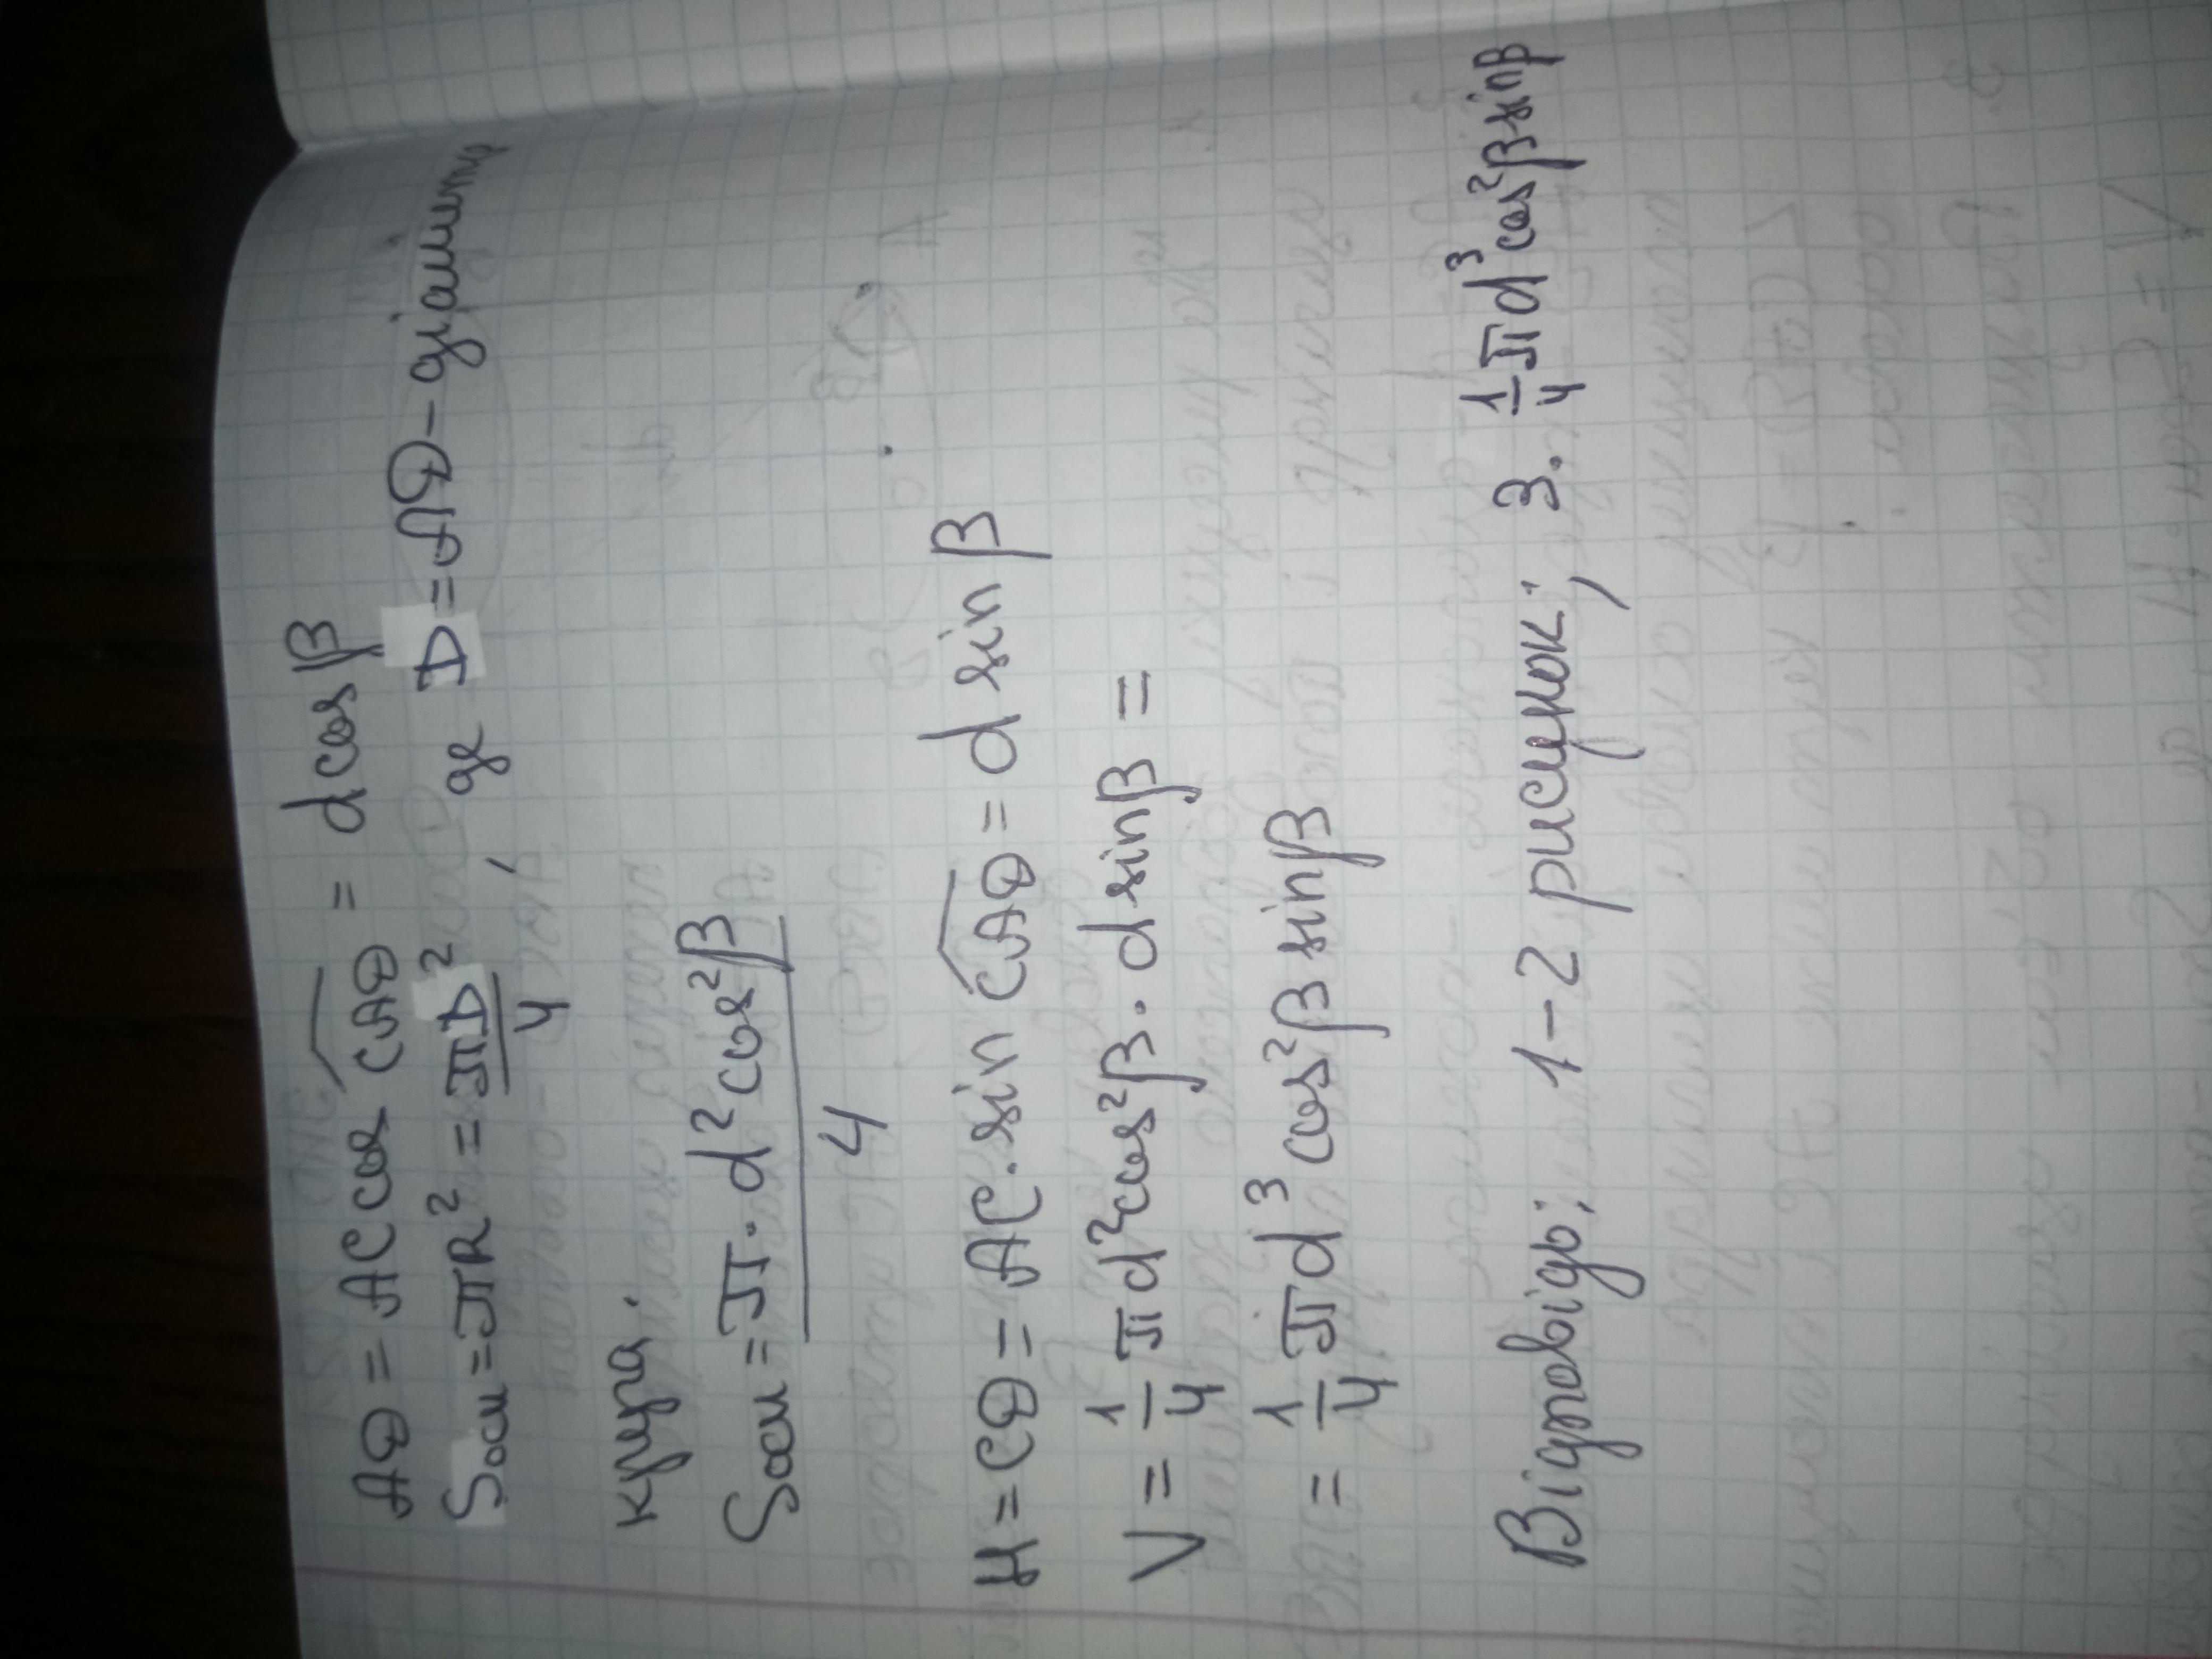 AD = AC cos CAD = d cos β
Sосн = πR² = πD²/4, де D = AD – діаметр
круга.
Sосн = π · d² cos² β / 4
H = CD = AC · sin CAD = d sin β
V = 1/4 πd² cos² β · d sin β =
= 1/4 πd³ cos² β sin β
Відповідь: 1–2 рисунок; 3. 1/4 πd³ cos² β sin β